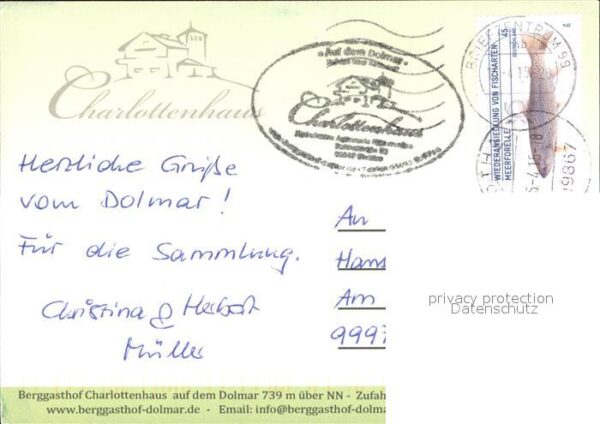 Charlottenhaus
Auf dem Dolmar
Charlottenhaus
BRIEFZENTRUM 99
45
DEUTSCHLAND
WIEDERANSIEDLUNG VON FISCHARTEN
MEERFORELLE
Herzliche Grüße
vom Dolmar!
Für die Sammlung.
Christina & Herbert
Müller
An
Hans
Am
9997
privacy protection
Datenschutz
Berggasthof Charlottenhaus auf dem Dolmar 739 m über NN - Zufah
www.berggasthof-dolmar.de - Email: info@berggasthof-dolma